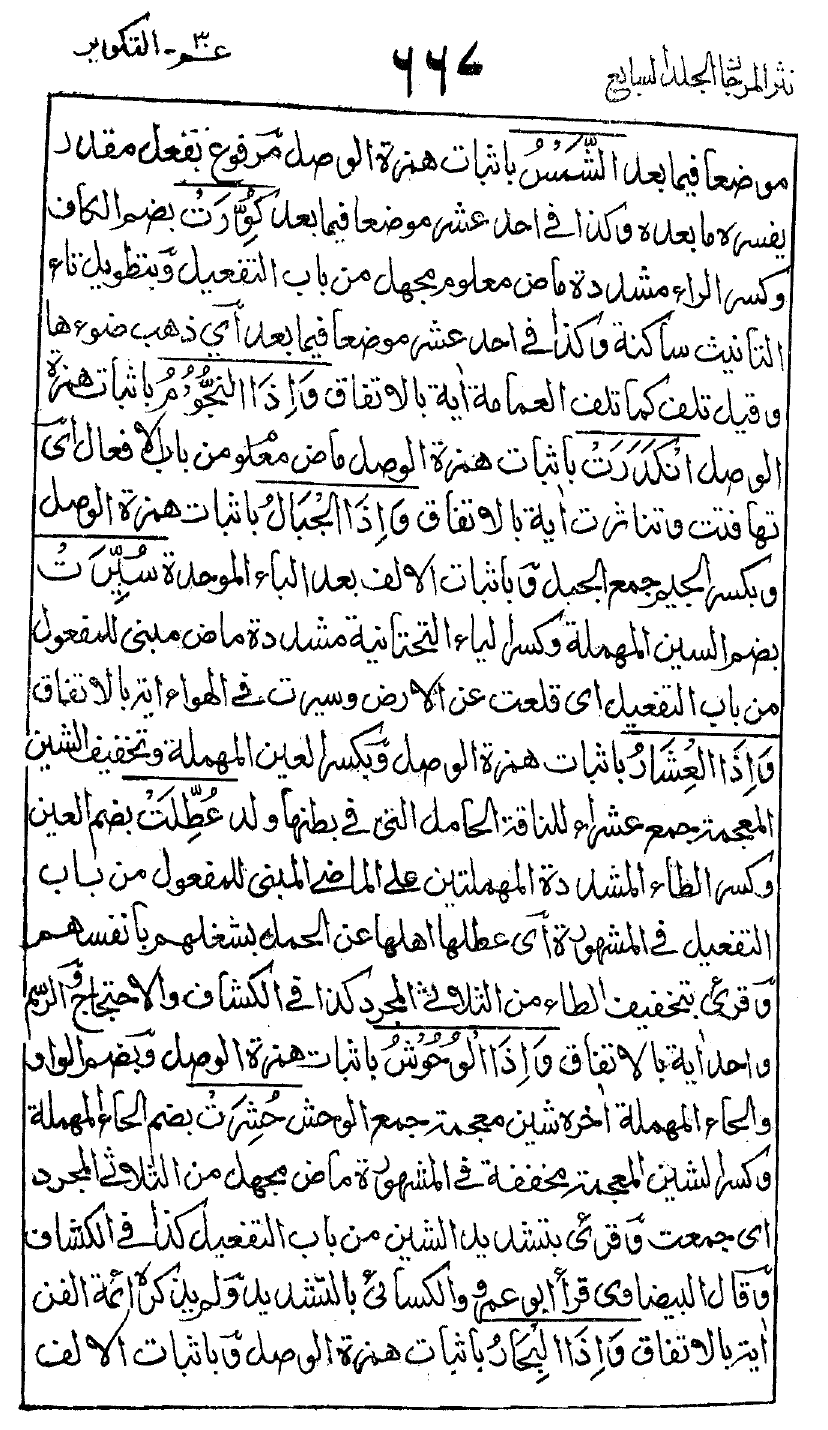 نثر المرجان الجلد السابع
٦٦٧
عم ٣٠ - التكوير
موضعا فيما بعد الشَّمْسُ باثبات همزة الوصل مرفوع بفعل مقدر
يفسره ما بعده وكذا في احد عشر موضعا فيما بعد كُوِّرَتْ بضم الكاف
وكسر الراء مشددة ماض معلوم مجهل من باب التفعيل وبتطويل تاء
التانيث ساكنة وكذا في احد عشر موضعا فيما بعد أي ذهب ضوءها
وقيل تلف كما تلف العمامة اية بالاتفاق وَاِذَا النُّجُوْمُ باثبات همزة
الوصل انْكَدَرَتْ باثبات همزة الوصل ماض معلوم من باب الافعال أى
تهافتت وتناثرت اية بالاتفاق وَاِذَا الْجِبَالُ باثبات همزة الوصل
وبكسر الجيم جمع الجبل وباثبات الالف بعد الباء الموحدة سُيِّرَتْ
بضم السين المهملة وكسر الياء التحتانية مشددة ماض مبنى للمفعول
من باب التفعيل اى قلعت عن الارض وسيرت في الهواء اية بالاتفاق
وَاِذَا الْعِشَارُ باثبات همزة الوصل وبكسر العين المهملة وتخفيف الشين
المعجمة جمع عشراء للناقة الحامل التي في بطنها ولد عُطِّلَتْ بضم العين
وكسر الطاء المشددة المهملتين على الماضي المبنى للمفعول من باب
التفعيل في المشهورة أى عطلها اهلها عن الحمل بشغلهم بأنفسهم
وقرئ بتخفيف الطاء من الثلاثي المجرد كذا في الكشاف والاحتجاج والرسم
واحد اية بالاتفاق وَاِذَا الْوُحُوْشُ باثبات همزة الوصل وبضم الواو
والحاء المهملة اخره شين معجمة جمع الوحش حُشِرَتْ بضم الحاء المهملة
وكسر الشين المعجمة مخففة في المشهورة ماض مجهل من الثلاثي المجرد
اى جمعت وقرئ بتشديد الشين من باب التفعيل كذا في الكشاف
وقال البيضاوى قرأ ابو عمرو والكسائي بالتشديد ولم يذكره ائمة الفن
اية بالاتفاق وَاِذَا الْبِحَارُ باثبات همزة الوصل وباثبات الالف